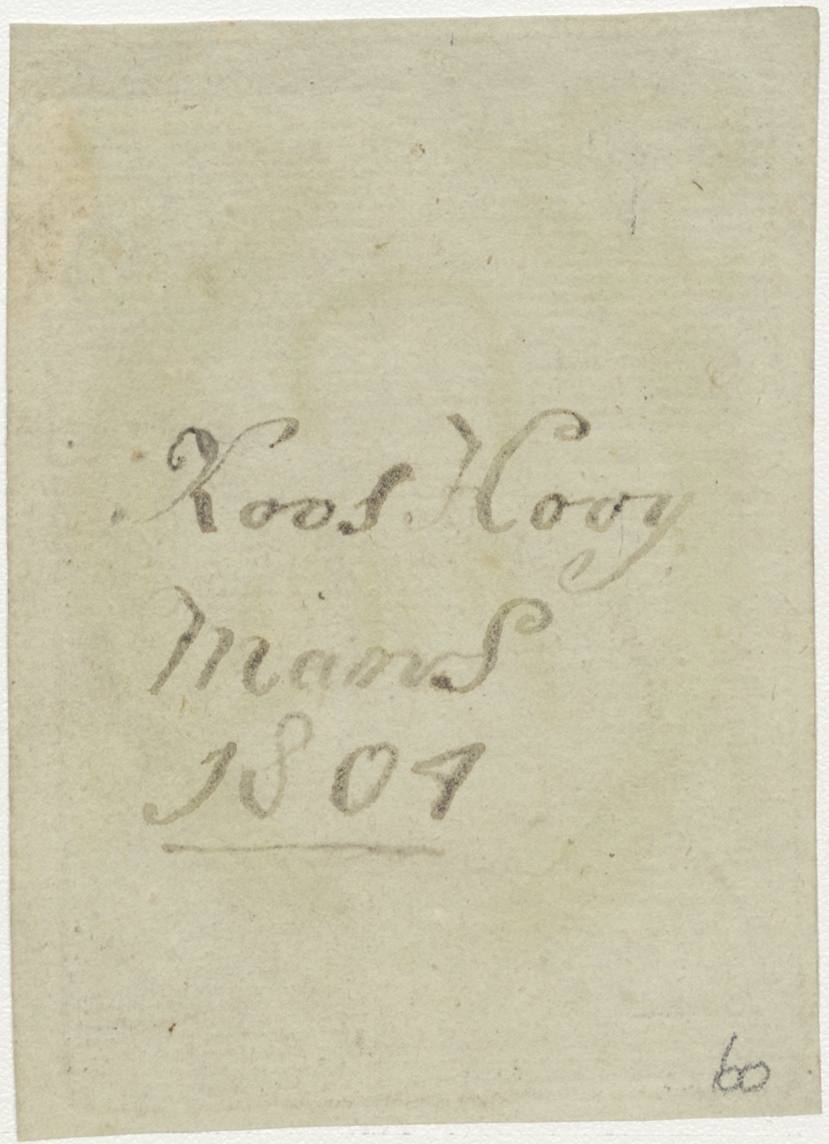 Koos Hooy
Mans
1804
60